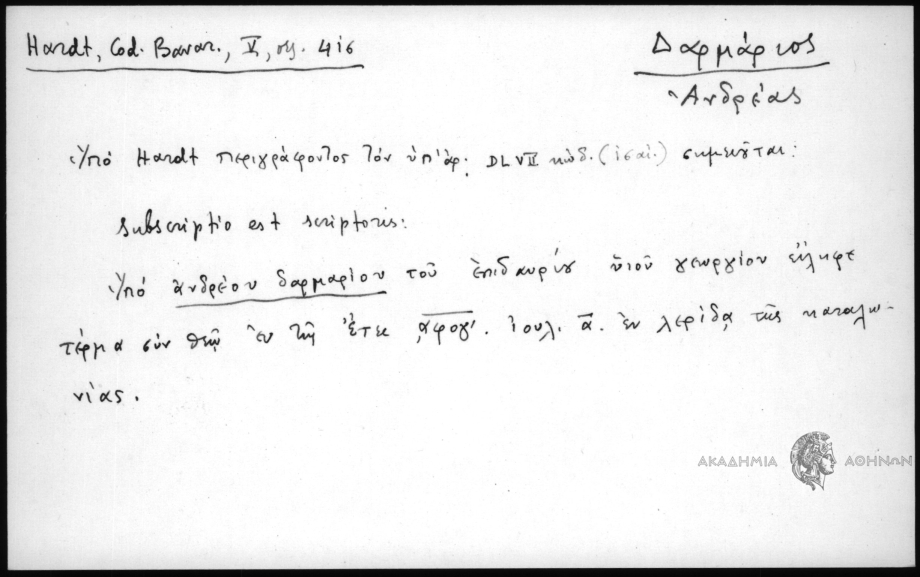 Hardt, Cod. Bavar., V, σg. 416
Δαρμάριος
Ἀνδρέας
Ὑπό Hardt περιγράφοντος τόν ὑπ' ἀρ. DLVII κώδ. (ἰσαι.) σημειοῦται:
Subscriptio est scriptoris:
Ὑπό ἀνδρέου δαρμαρίου τοῦ ἐπιδαυρίου ὑιοῦ γεωργίου εἴληφε
τέρμα σύν θεῷ ἐν τῇ ἔτει ͵αφογ'. Ἰουλ. α. ἐν λερίδᾳ τῆς καταλω-
νίας.
ΑΚΑΔΗΜΙΑ ΑΘΗΝΩΝ